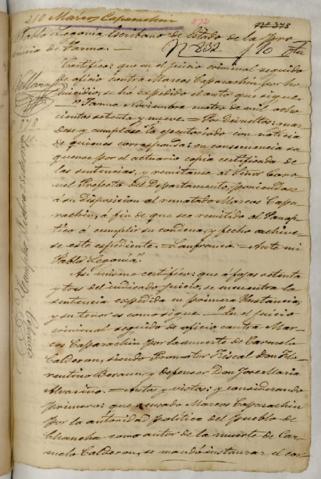 210 Marcos Caparachin
Pablo Legonia Escribano de Estado de la Pro-
vincia de Tarma.
Nº 232.
Certifico: que en el juicio criminal seguido
de oficio contra Marcos Caparachin por ho-
micidio, se ha expedido el auto que sigue.
Tarma Noviembre de mil ocho-
cientos setenta y nueve. = Por devueltos: gua-
dese y cumplase lo ejecutoriado con noticia
de quienes corresponda: en consecuencia sa-
quense por el actuario copia certificada de
las sentencias, y remitanse al Señor Coro-
nel Prefecto del Departamento, poniendose
a su disposicion al rematado Marcos Cappa-
rachin, á fin de que sea remitido al Panop-
tico á cumplir su condena, y fecho archive-
se este expediente. = Lanfranco = Ante mi
Pablo Legonia"
Asi mismo certifico: que á fojas setenta
y tres del indicado juicio, se encuentra la
sentencia expedida en primera Instancia,
y su tenor es como sigue. = "En el juicio
criminal seguido de oficio contra Mar-
cos Caparachin por la muerte de Carmelo
Calderon, siendo Promotor Fiscal Don Flo-
rentino Beraun, y defensor Don José Maria
Alvariño. = Autos y vistos; y considerando
primero: que acusado Marcos Caparachin
por la autoridad politica del pueblo de
Chancha como autor de la muerte de Car-
melo Calderon, se mandó instaurar el cor-